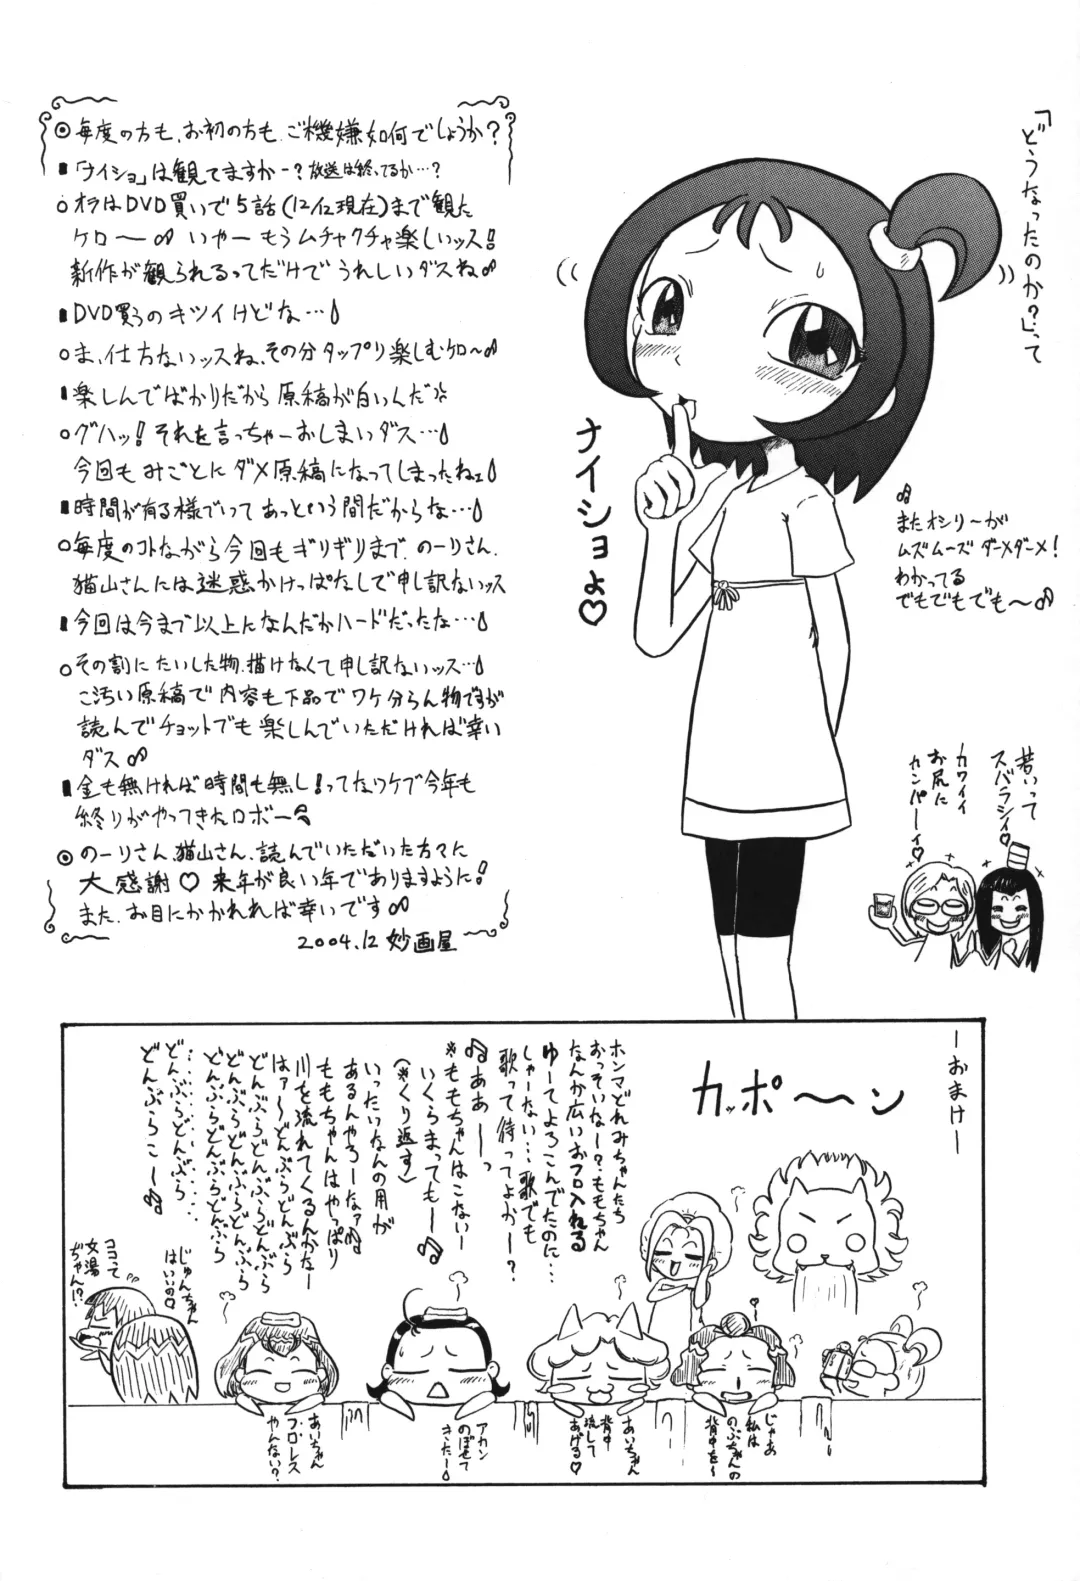 ◎毎度の方も、お初の方も、ご機嫌如何でしょうか?
■「ナイショ」は観てますかー?放送は終ってるか…?
○オラはDVD買いで5話(12/12現在)まで観た
ケロ〜♪いやーもうムチャクチャ楽しいッス!
新作が観られるってだけでうれしいダスね♪
■DVD買うのキツイけどな…
○ま、仕方ないッスね、その分タップリ楽しむケロ〜♪
■楽しんでばかりだから原稿が白いんだ
○グハッ!それを言っちゃーおしまいダス…
今回もみごとにダメ原稿になってしまったねェ
■時間が有る様でいてあっという間だからな…
○毎度のコトながら今回もギリギリまで、のーりさん、
猫山さんには迷惑かけっぱなしで申し訳ないッス
■今回は今まで以上になんだかハードだったな…
○その割にたいした物、描けなくて申し訳ないッス…
こ汚い原稿で内容も下品でワケ分らん物ですが
読んでチョットでも楽しんでいただければ幸い
ダス♪
■金も無ければ時間も無し!ってなワケで今年も
終りがやってきたロボー
◎のーりさん、猫山さん、読んでいただいた方々に
大感謝♡来年が良い年でありますように!
また、お目にかかれれば幸いです♪
2004.12 妙画屋
「どうなったのか?」って
ナイショよ♡
♪またオシリ〜が
ムズムーズ ダーメダーメ!
わかってる
でもでもでも〜♪
若いって
スバラシィ♡
カワイイ
お尻に
カンパーイ♡
ーおまけー
カッポ〜ン
ホンマどれみちゃんたち
おっそいなー?ももちゃん
なんか広いおフロ入れる
ゆーてよろこんでたのに…
しゃーない…歌でも
歌って待ってよかー?
♪ああーっ
*ももちゃんはこないー
いくらまってもー♪
(*くり返す)
いったいなんの用が
あるんやろーなァ♪
ももちゃんはやっぱり
川を流れてくるんかなー
はァ〜どんぶらどんぶら
どんぶらどんぶらどんぶら
どんぶらどんぶらどんぶら
どんぶらどんぶらどんぶら
………………
どんぶらどんぶら
どんぶらこー♪
じゅんちゃん
はいいの♡
ココって
女湯
ぢゃん!?
じゃあ
私は
のぶちゃんの
背中を〜
あいちゃん
背中
流して
あげる♡
アカン
のぼせて
きたー
あいちゃん
プロレス
やんない?